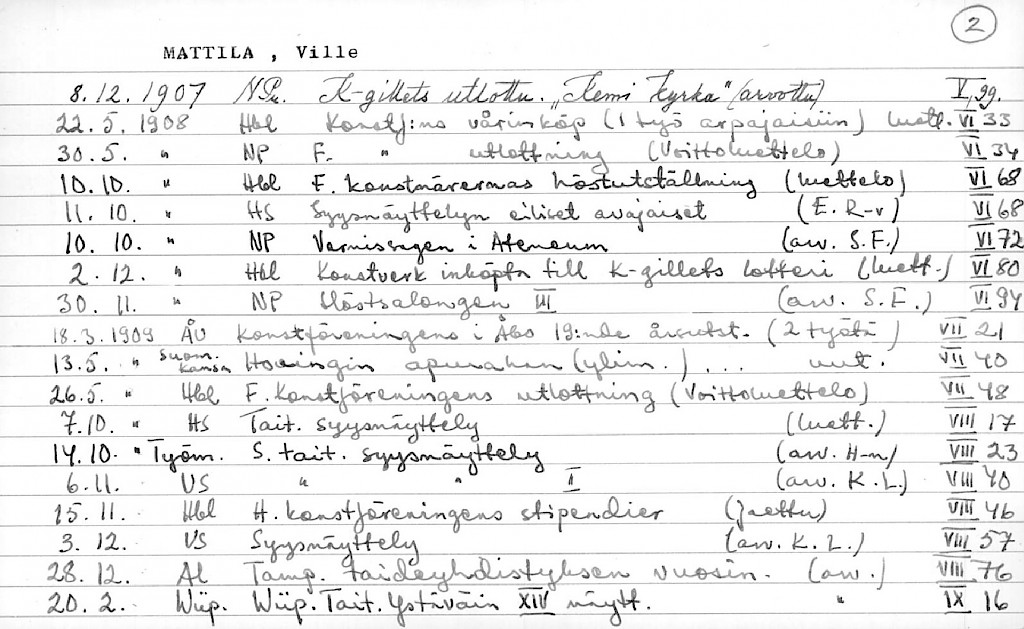 2
MATTILA , Ville
8. 12. 1907 NPr. K-gillets utlottn. „Kemi kyrka" (arvottu) V, 99.
22. 5. 1908 Hbl Konstf:ns vårinköp (1 työ arpajaisiin) luett. VI 33
30. 5. " NP F. " utlottning (Voittoluettelo) VI 34
10. 10. " Hbl F. konstnärernas höstutställning (luettelo) VI 68
11. 10. " HS Syysnäyttelyn eiliset avajaiset (E. R-v) VI 68
10. 10. " NP Vernissagen i Ateneum (arv. S.F.) VI 72
2. 12. " Hbl Konstverk inköpta till K-gillets lotteri (luett.) VI 80
30. 11. " NP Höstsalongen III (arv. S.F.) VI 94
18. 3. 1909 ÅU Konstföreningens i Åbo 19:nde årsutst. (2 työtä) VII 21
13. 5. " Suom. Kansa Hovingin apurahan (ylim. ) ... uut. VII 40
26. 5. " Hbl F. Konstföreningens utlottning (Voittoluettelo) VII 48
7. 10. " HS Tait. syysnäyttely (luett.) VIII 17
14. 10. " Työm. S. tait. syysnäyttely (arv. H-n) VIII 23
6. 11. US " " II (arv. K.L.) VIII 40
15. 11. Hbl H. konstföreningens stipendier (jaettu) VIII 46
3. 12. US Syysnäyttely (arv. K.L.) VIII 57
28. 12. Al Tamp. taideyhdistyksen vuosin. (arv.) VIII 76
20. 2. Wiip. Wiip. Tait. Ystäväin XIV näytt. " IX 16